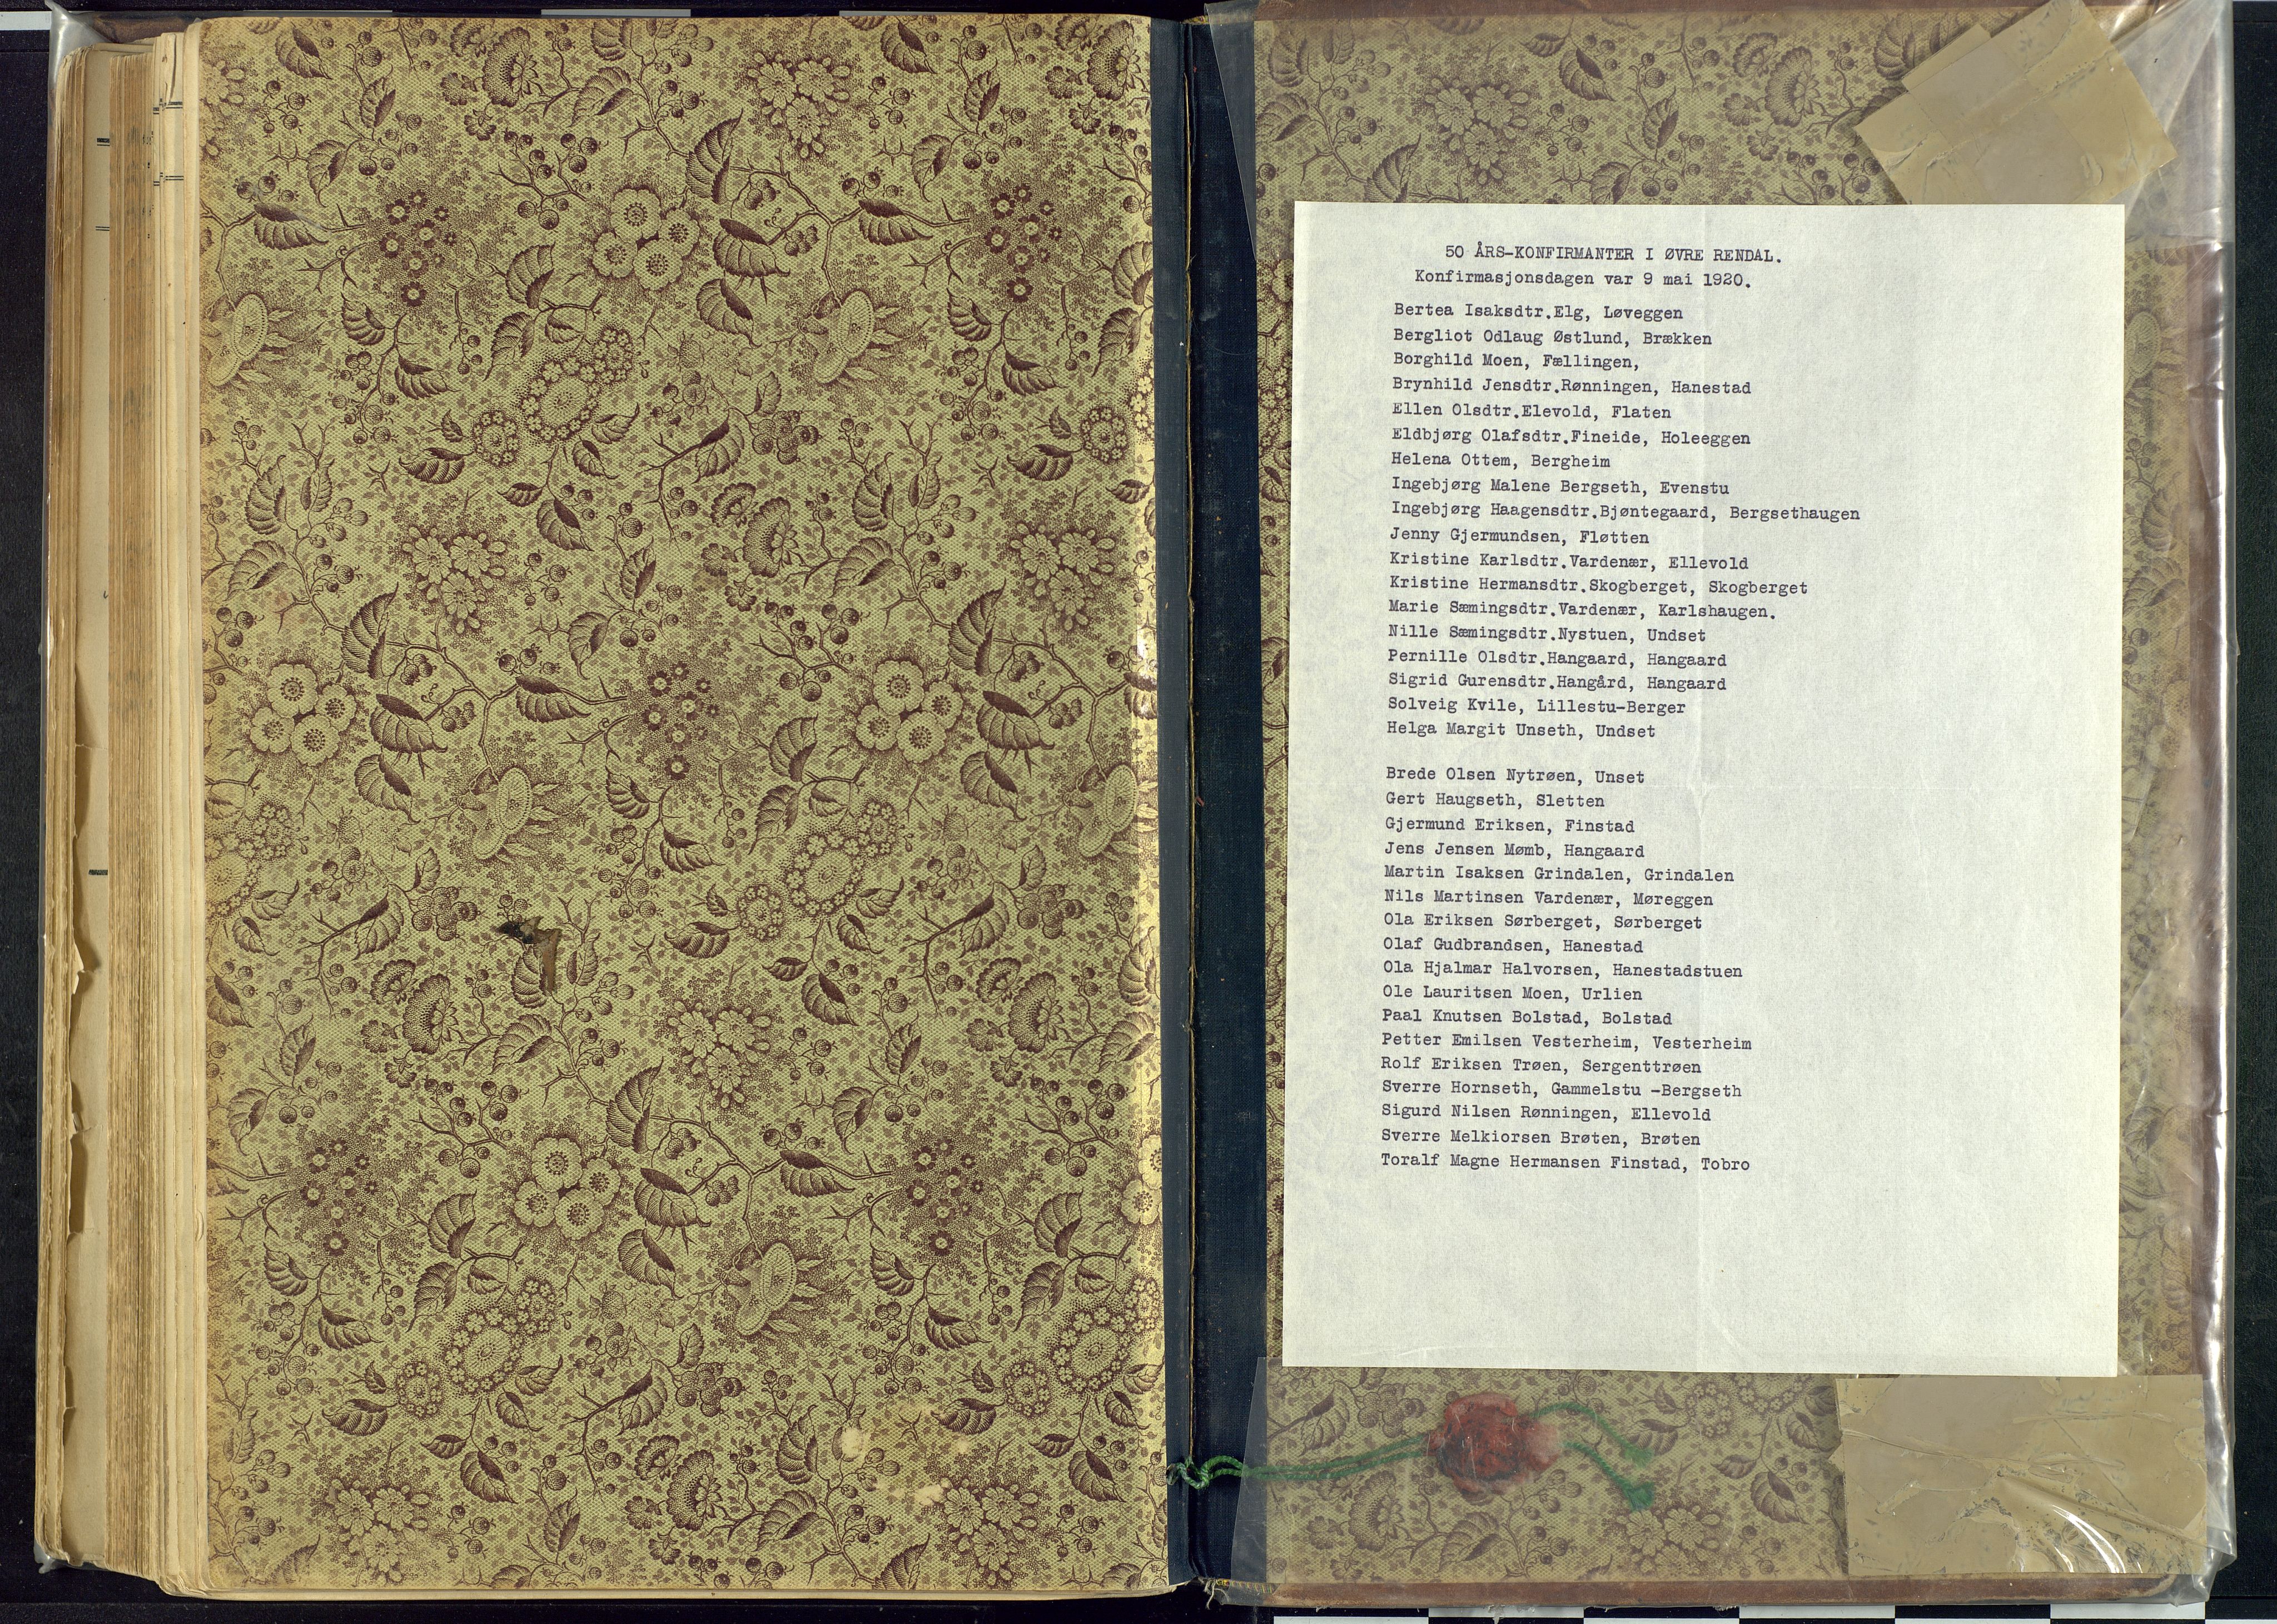 50 ÅRS-KONFIRMANTER I ØVRE RENDAL.
Konfirmasjonsdagen var 9 mai 1920.
Bertea Isaksdtr.Elg, Løveggen
Bergliot Odlaug Østlund, Brækken
Borghild Moen, Fællingen,
Brynhild Jensdtr.Rønningen, Hanestad
Ellen Olsdtr.Elevold, Flaten
Eldbjørg Olafsdtr.Fineide, Holeeggen
Helena Ottem, Bergheim
Ingebjørg Malene Bergseth, Evenstu
Ingebjørg Haagensdtr.Bjøntegaard, Bergsethaugen
Jenny Gjermundsen, Fløtten
Kristine Karlsdtr.Vardenær, Ellevold
Kristine Hermansdtr.Skogberget, Skogberget
Marie Sæmingsdtr.Vardenær, Karlshaugen.
Nille Sæmingsdtr.Nystuen, Undset
Pernille Olsdtr.Hangaard, Hangaard
Sigrid Gurensdtr.Hangård, Hangaard
Solveig Kvile, Lillestu-Berger
Helga Margit Unseth, Undset
Brede Olsen Nytrøen, Unset
Gert Haugseth, Sletten
Gjermund Eriksen, Finstad
Jens Jensen Mømb, Hangaard
Martin Isaksen Grindalen, Grindalen
Nils Martinsen Vardenær, Møreggen
Ola Eriksen Sørberget, Sørberget
Olaf Gudbrandsen, Hanestad
Ola Hjalmar Halvorsen, Hanestadstuen
Ole Lauritsen Moen, Urlien
Paal Knutsen Bolstad, Bolstad
Petter Emilsen Vesterheim, Vesterheim
Rolf Eriksen Trøen, Sergenttrøen
Sverre Hornseth, Gammelstu -Bergseth
Sigurd Nilsen Rønningen, Ellevold
Sverre Melkiorsen Brøten, Brøten
Toralf Magne Hermansen Finstad, Tobro